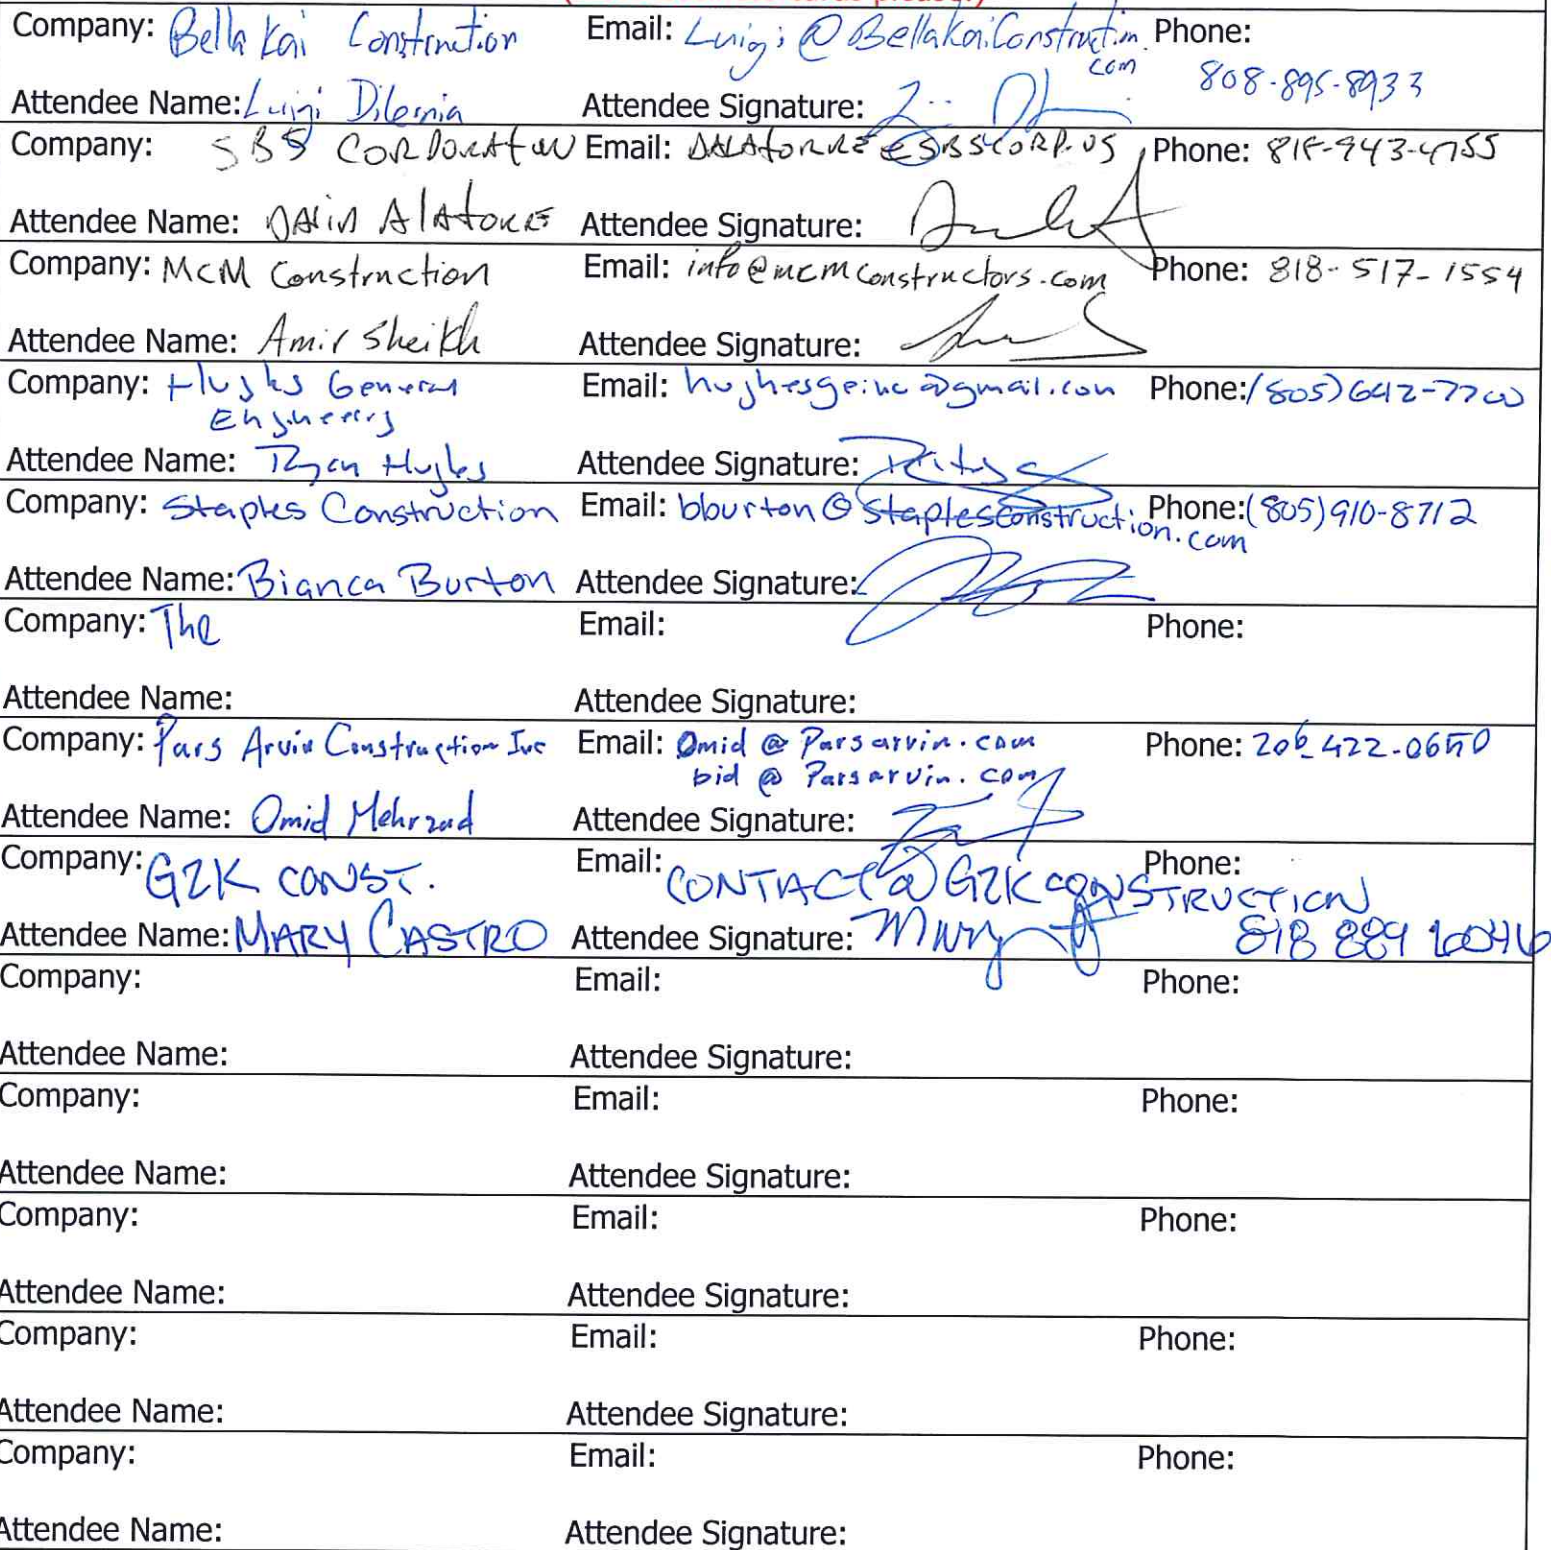 Company: Bella Kai Construction Email: Luigi@BellaKaiConstruction.com Phone: 808-895-8933
Attendee Name: Luigi Attendee Signature:
Company: SBS CORPORATION Email: DALATORRE@SBSCORP.US Phone: 818-943-4755
Attendee Name: DAVID ALATORRE Attendee Signature:
Company: MCM Construction Email: info@mcmconstructors.com Phone: 818-517-1554
Attendee Name: Amir Sheikh Attendee Signature:
Company: Hughes General Engineering Email: hughesgeinc@gmail.com Phone: (805) 642-7700
Attendee Name: Ryan Hughes Attendee Signature:
Company: Staples Construction Email: bburton@staplesconstruction.com Phone: (805) 910-8712
Attendee Name: Bianca Burton Attendee Signature:
Company: The Email: Phone:
Attendee Name: Attendee Signature:
Company: Pars Arvin Construction Inc Email: Omid@Parsarvin.com Phone: 206-422-0650
bid@Parsarvin.com
Attendee Name: Omid Mehrzad Attendee Signature:
Company: G2K CONST. Email: CONTACT@G2KCONSTRUCTION Phone:
Attendee Name: MARY CASTRO Attendee Signature: 818 889
Company: Email: Phone:
Attendee Name: Attendee Signature:
Company: Email: Phone:
Attendee Name: Attendee Signature:
Company: Email: Phone:
Attendee Name: Attendee Signature:
Company: Email: Phone:
Attendee Name: Attendee Signature:
Company: Email: Phone:
Attendee Name: Attendee Signature: